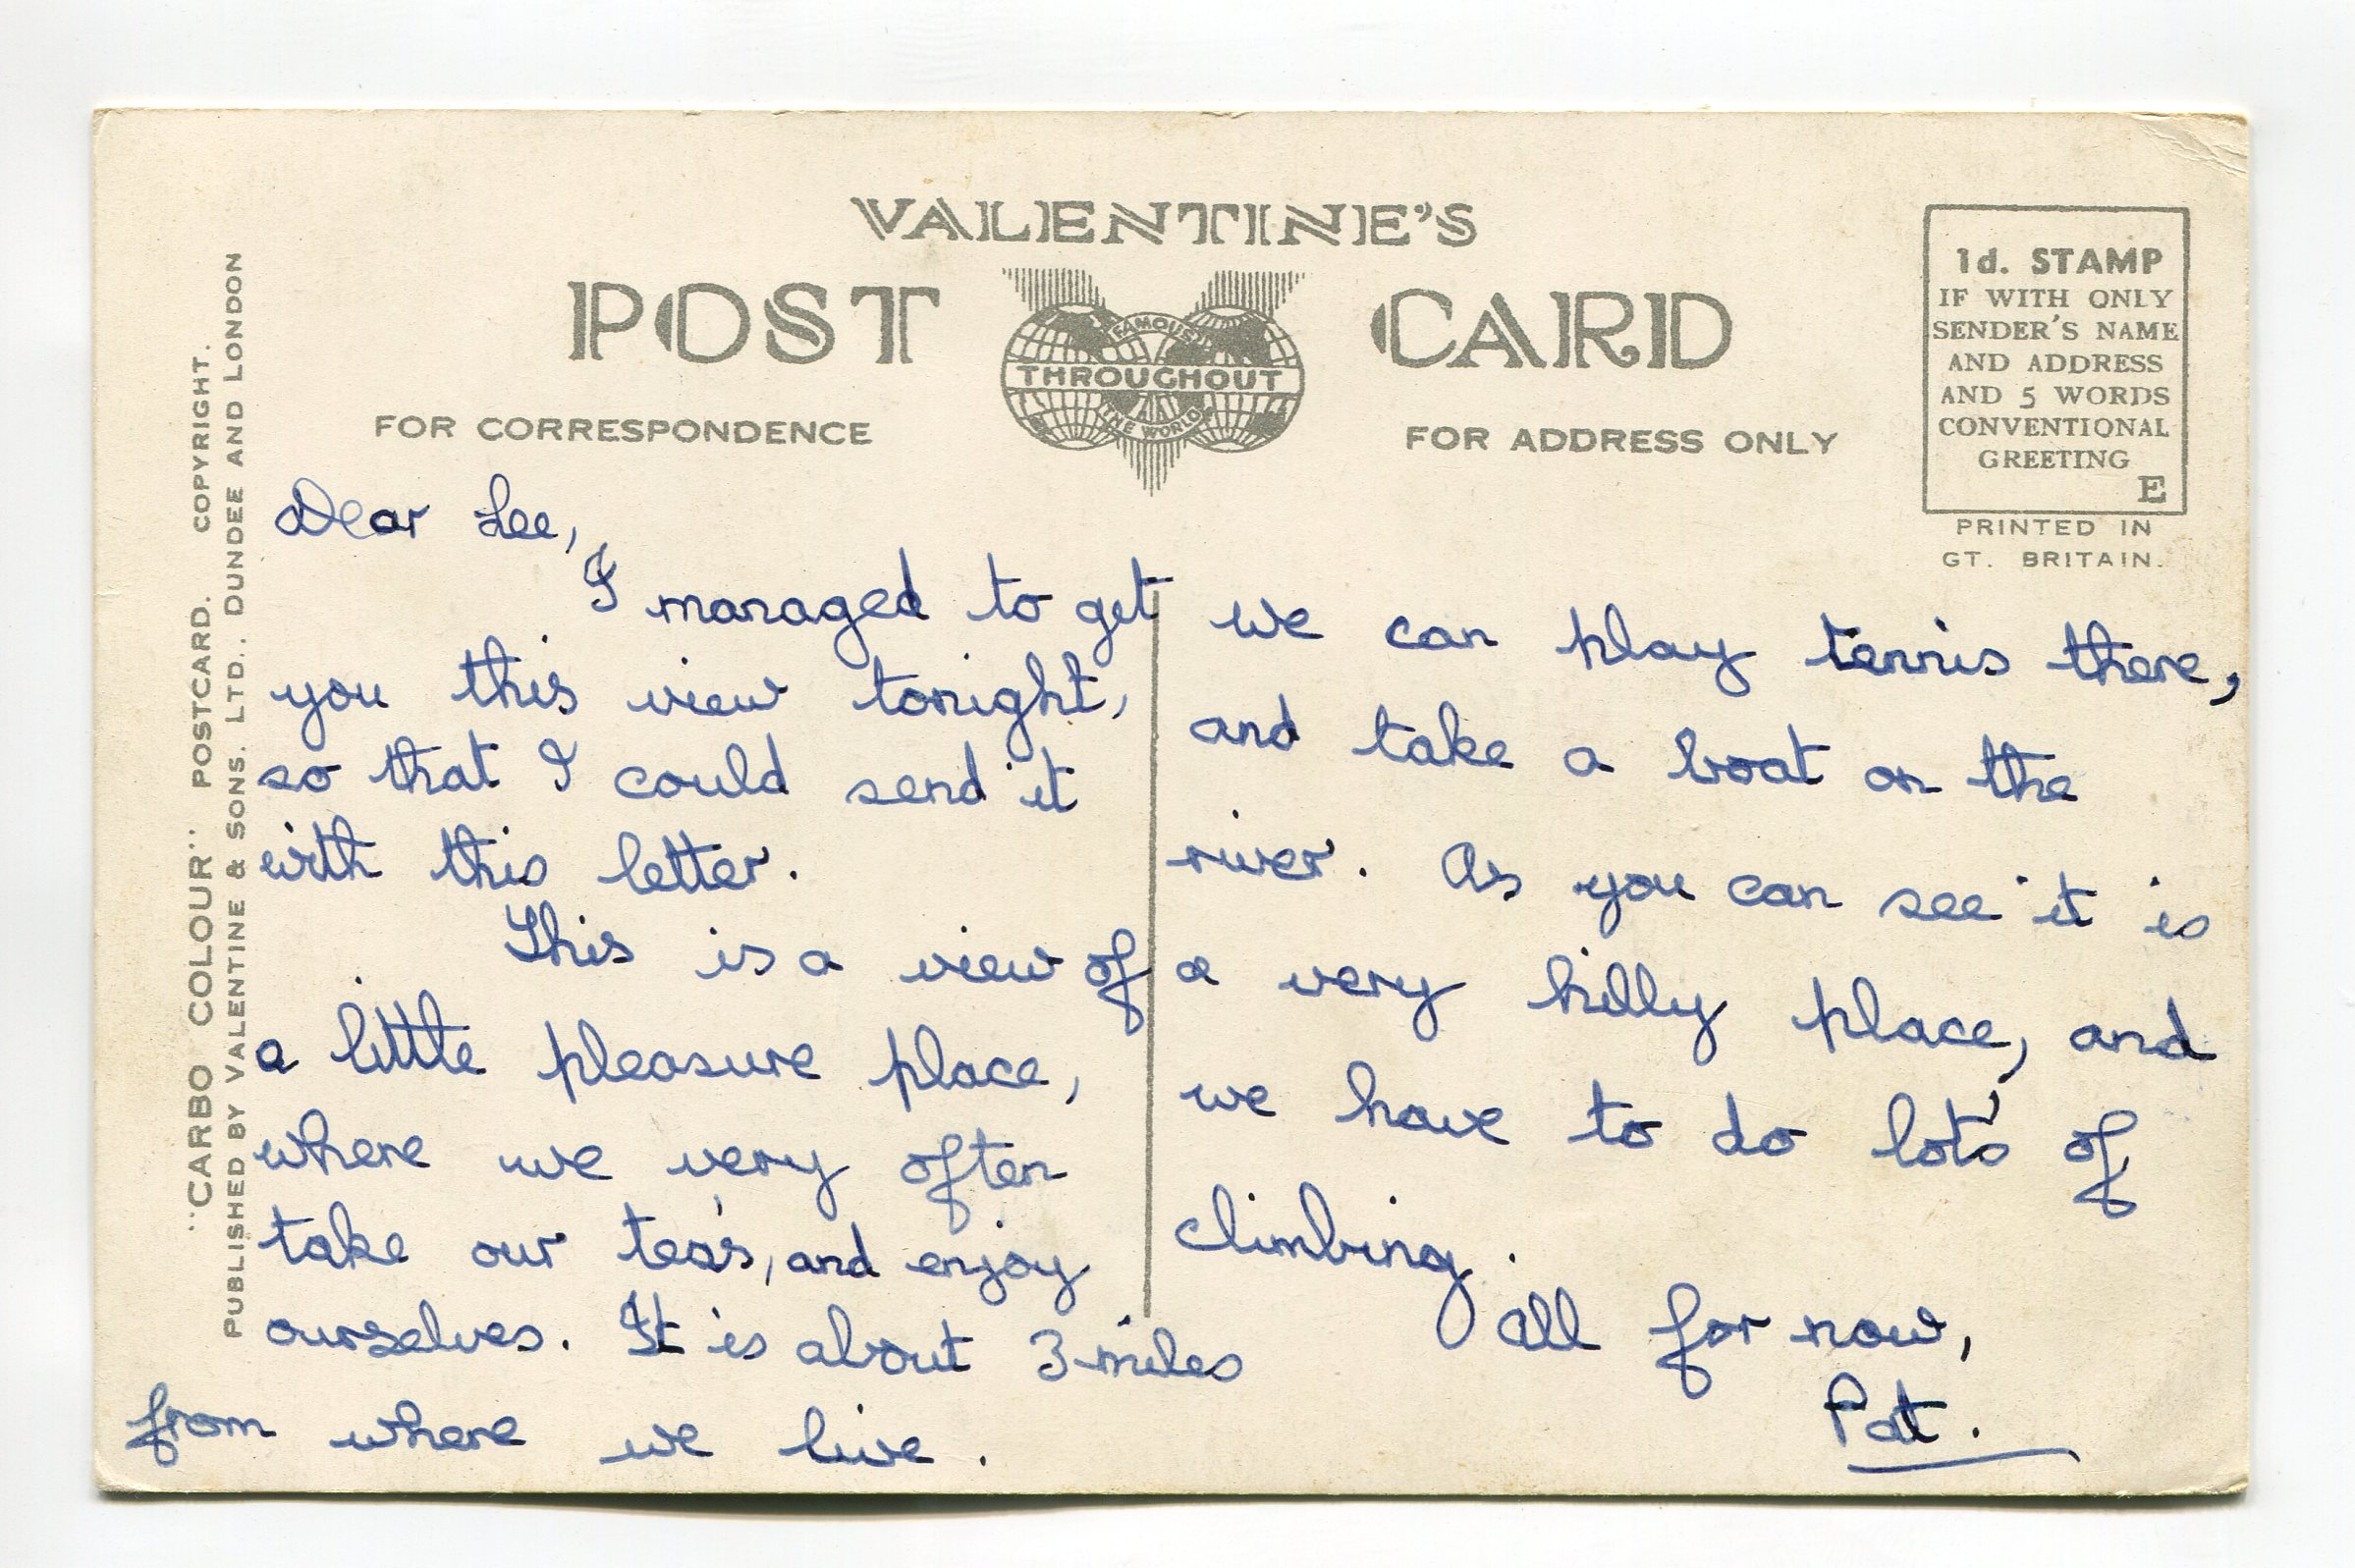 VALENTINE'S
POST CARD
FAMOUS
THROUGHOUT
THE WORLD
FOR CORRESPONDENCE
FOR ADDRESS ONLY
1d. STAMP
IF WITH ONLY
SENDER'S NAME
AND ADDRESS
AND 5 WORDS
CONVENTIONAL
GREETING
E
PRINTED IN
GT. BRITAIN.
"CARBO COLOUR" POSTCARD. COPYRIGHT.
PUBLISHED BY VALENTINE & SONS. LTD., DUNDEE AND LONDON
Dear Lee,
I managed to get
you this view tonight,
so that I could send it
with this letter.
This is a view of
a little pleasure place,
where we very often
take our tea's, and enjoy
ourselves. It is about 3 miles
from where we live.
we can play tennis there,
and take a boat on the
river. As you can see it is
a very hilly place, and
we have to do lot's of
climbing.
All for now,
Pat.